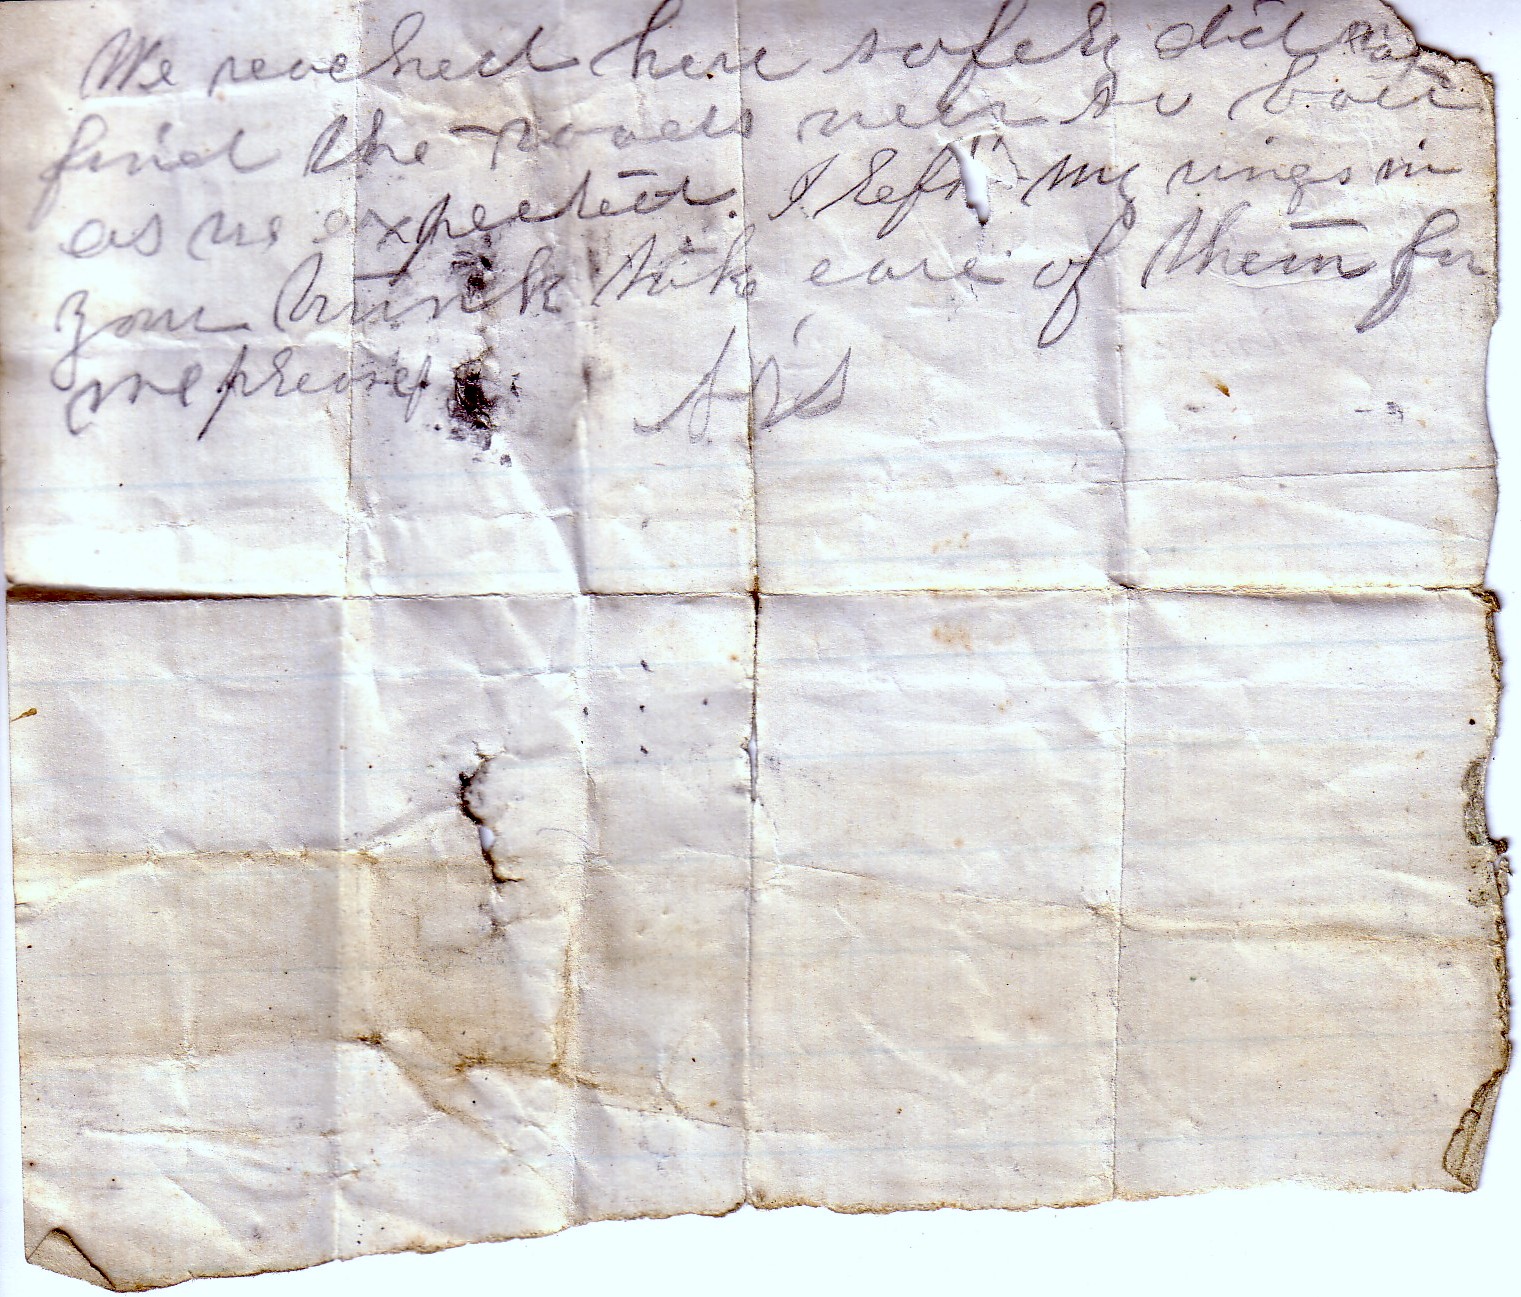 We reached here safely did not
find the roads near so bad
as we expected. I left my rings in
your trunk take care of them for
me please